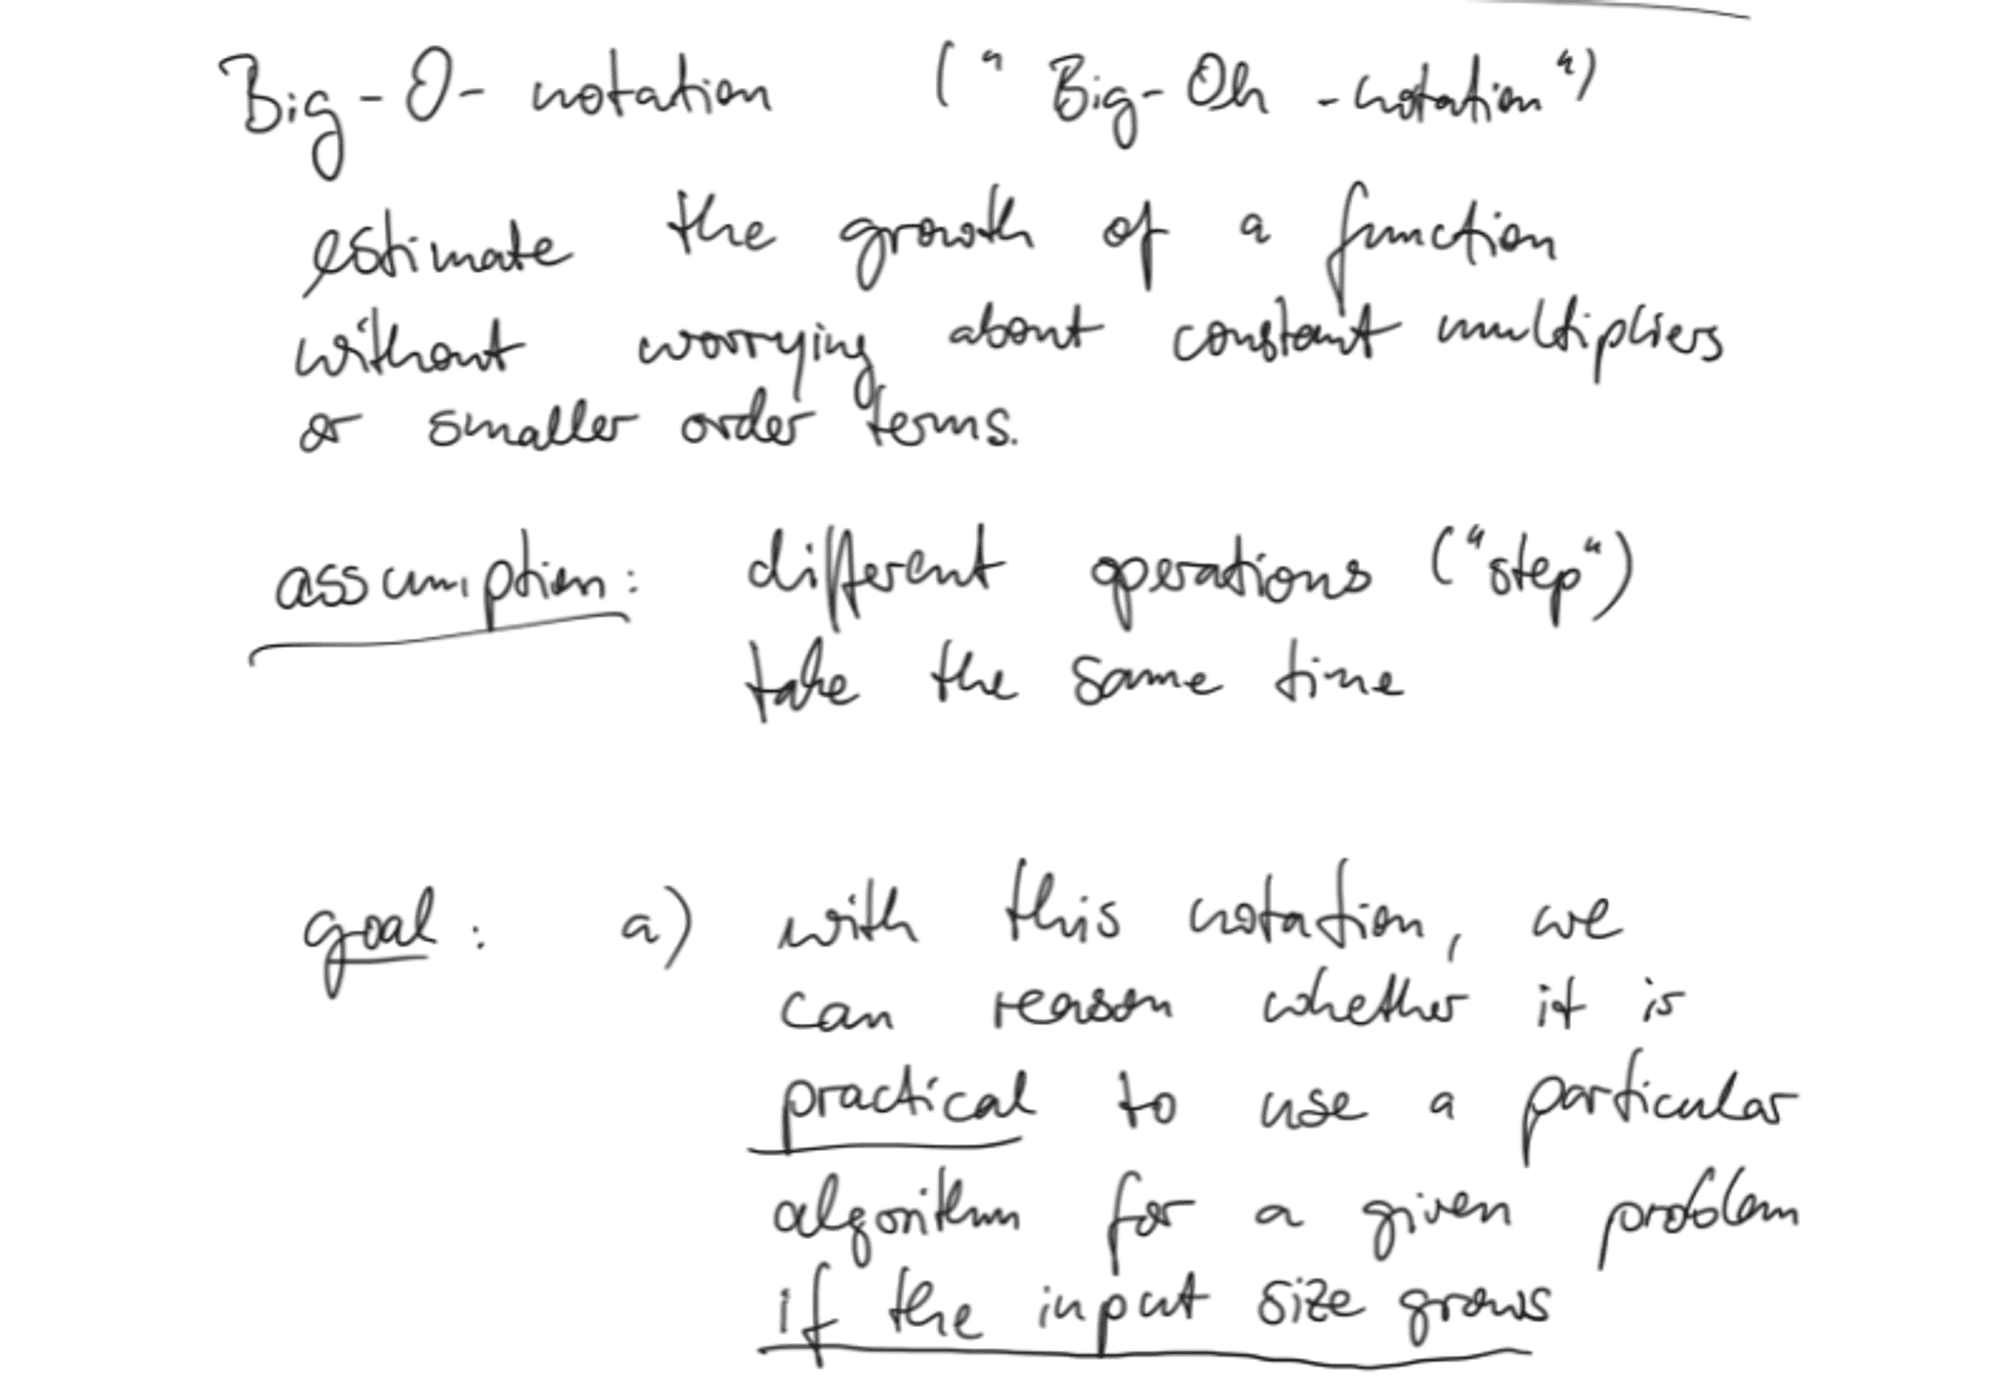 Big-O-notation (" Big-Oh -notation")
estimate the growth of a function
without worrying about constant multipliers
or smaller order terms.
assumption: different operations ("step")
take the same time
goal: a) with this notation, we
can reason whether it is
practical to use a particular
algorithm for a given problem
if the input size grows